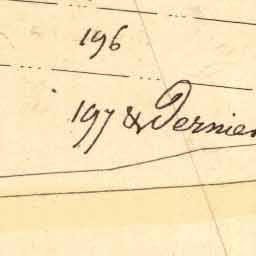 196
197 & Dernier